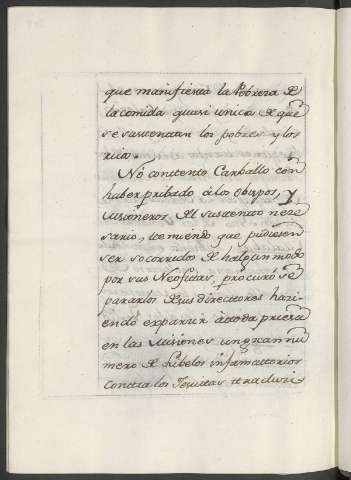 que manifiesta la Pobreza de
la comida quasi unica de que
se sustentan los pobres y los
rico.
No contento Carballo con
haber pribado â los Obispos, y
Misioneros del sustento nece
sario, temiendo que pudiesen
ser socorridos de halgun modo
por sus Neofitas, procuró se
pararlos de sus directores hazi-
endo exparcir â ttoda prieza
en las Misiones un gran nu
mero de Libelos infamattorios
contra los Jesuitas traduci